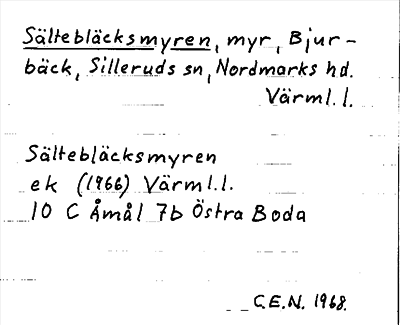 Sältebläcksmyren, myr, Bjur-
bäck, Silleruds sn, Nordmarks hd.
Värml. l.
Sältebläcksmyren
ek (1966) Värml.l.
10 C Åmål 7b Östra Boda
C.E.N. 1968.